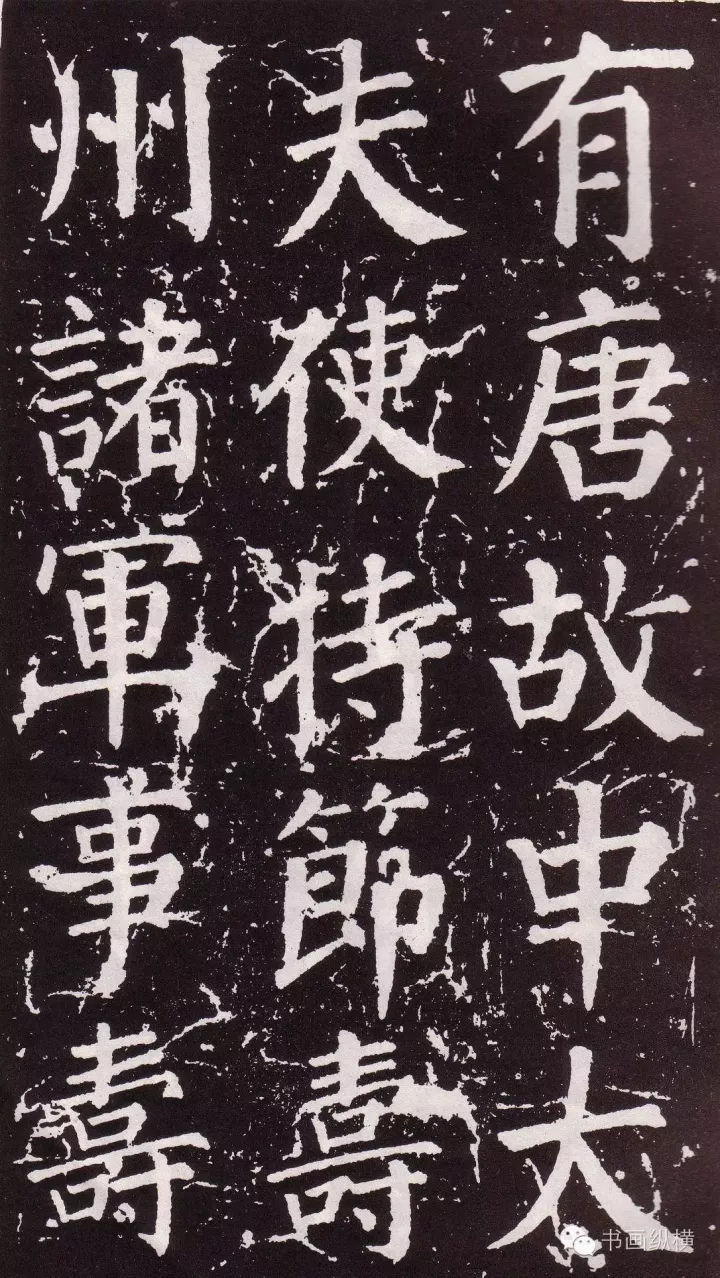 有唐故中大
夫使持節壽
州諸軍事壽
书画纵横